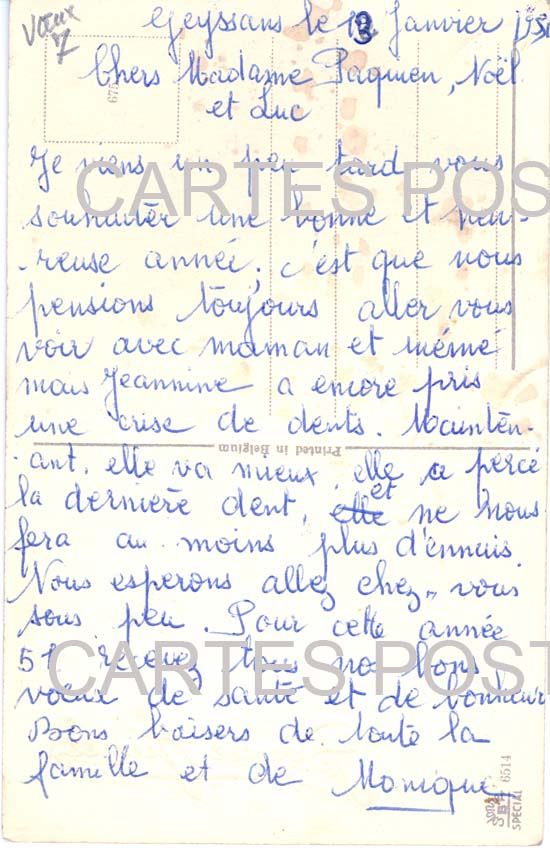 Vœux
Geyssans le 13 Janvier 1951
Chers Madame Paquien, Noël
et Luc
Je viens un peu tard vous
souhaiter une bonne et heu-
-reuse année, c'est que nous
pensions toujours aller vous
voir avec maman et mémé
mais Jeannine a encore pris
une crise de dents. Mainten-
-ant, elle va mieux, elle a percé
la dernière dent, et ne nous
fera au moins plus d'ennuis.
Nous esperons allez chez-vous
sous peu. Pour cette année
51 recevez tous nos bons
vœux de santé et de bonheur
Bons baisers de toute la
famille et de Monique
Printed in Belgium
CARTES POST
CARTES POST
675
6514
SPECIAL